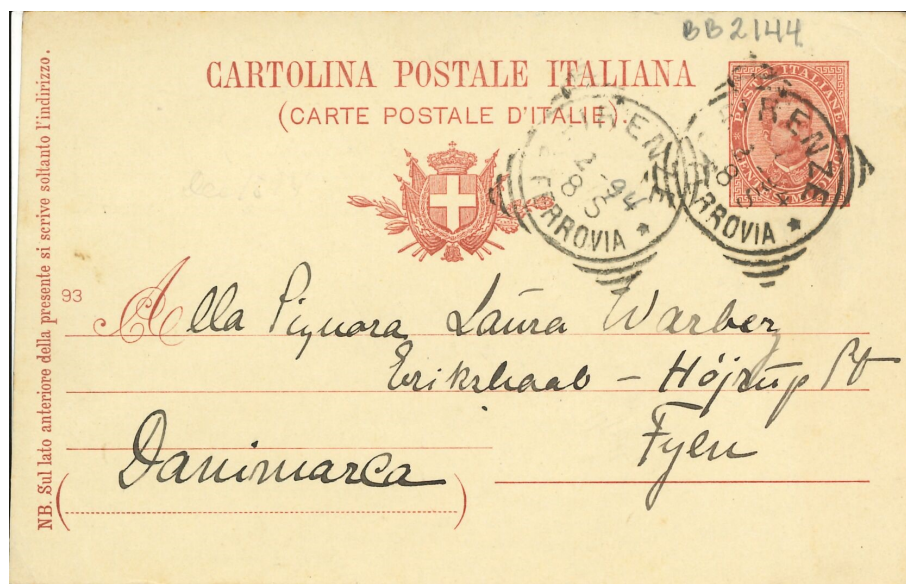 BB2144
CARTOLINA POSTALE ITALIANA
(CARTE POSTALE D'ITALIE).
FIRENZE
FERROVIA
FIRENZE
FERROVIA
NB. Sul lato anteriore della presente si scrive soltanto l'indirizzo.
93
Alla Signora Laura Warberg
Erikshaab – Højrup St
Fyen
Danimarca